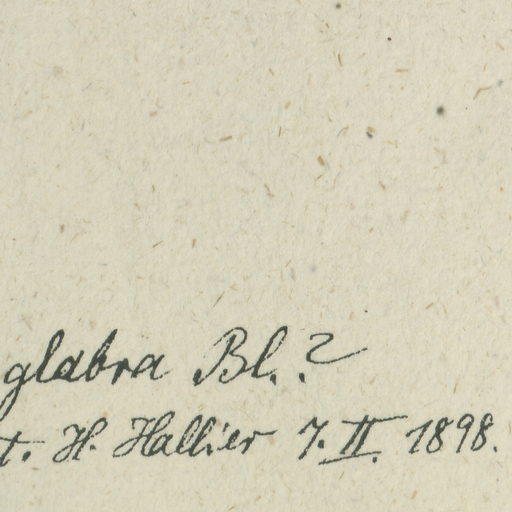 glabra Bl.?
t. H. Hallier 7. II. 1898.